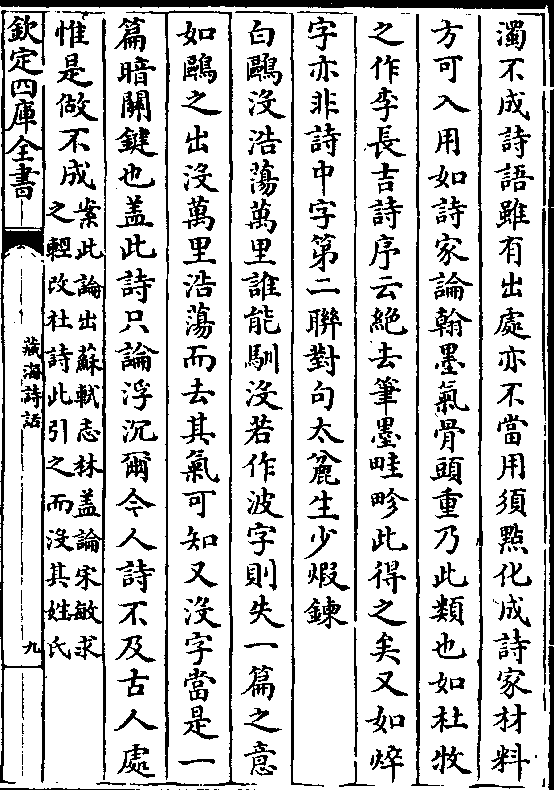 濁不成詩語雖有出處亦不當用須㸃化成詩家材料
方可入用如詩家論翰墨氣骨頭重乃此類也如杜牧
之作李長吉詩序云絶去筆墨畦畛此得之矣又如焠
字亦非詩中字第二聯對句太麄生少煆鍊
白鷗沒浩蕩萬里誰能馴沒若作波字則失一篇之意
如鷗之出沒萬里浩蕩而去其氣可知又沒字當是一
篇暗關鍵也蓋此詩只論浮沉爾今人詩不及古人處
惟是做不成
案此論出蘇軾志林蓋論宋敏求
之輕改杜詩此引之而沒其姓氏
欽定四庫全書
藏海詩話
九